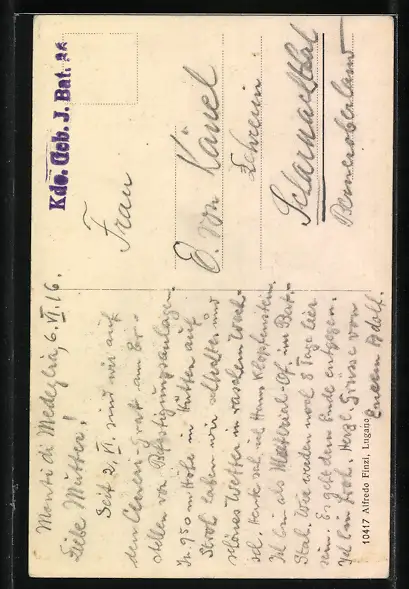 Kdo. Geb. J. Bat.
Frau
E. von Känel
Lehrerin
Scharnachthal
Berneroberland
Monti di Medeglia, 6. VI. 16.
Liebe Mutter!
Seit 2. VI. sind wir auf
dem Grat am Er-
stellen von Befestigungsanlagen.
In 950 m Höhe in Hütten auf
Stroh haben wir und
schönes Wetter in raschem Wech-
sel. Heute sah ich Hrn. Klopfenstein.
Ich bin als Material-Of. im Bat.-
Stab. Wir werden noch 8 Tage hier
sein. Es geht dem Ende entgegen.
Ich bin froh. Herzl. Grüsse von
Eurem Adolf.
10417 Alfredo Finzi, Lugano